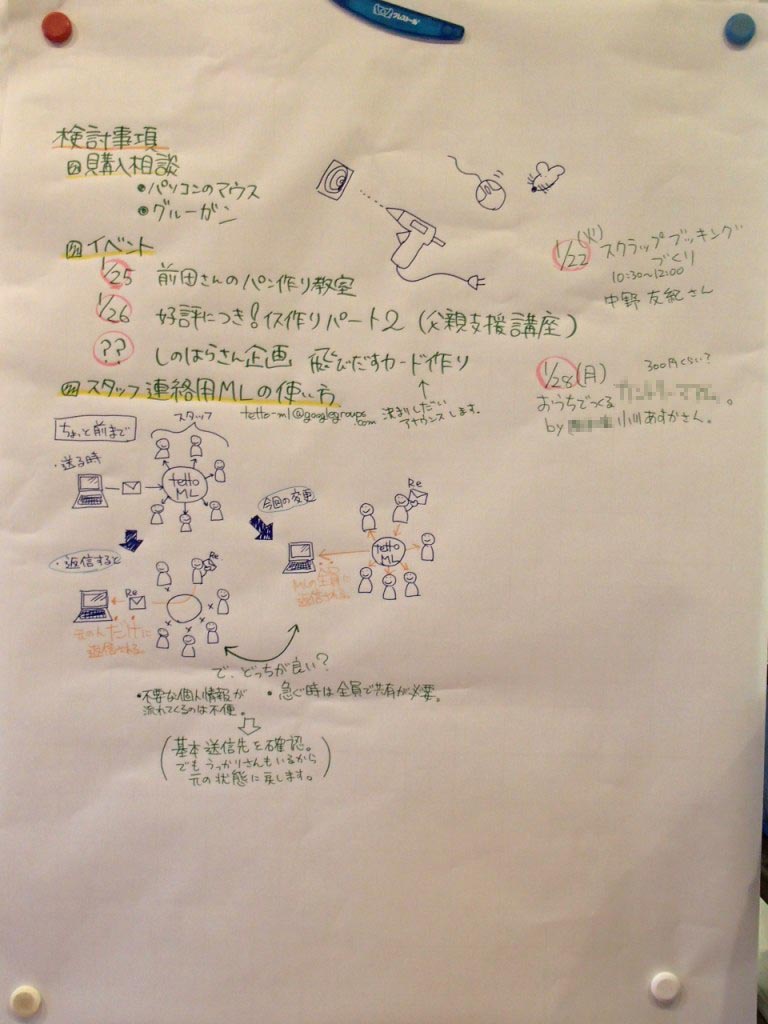 検討事項
購入相談
・パソコンのマウス
・グルーガン
イベント
1/25 前田さんのパン作り教室
1/26 好評につき!イス作りパート2 (父親支援講座)
?? しのはらさん企画 飛びだすカード作り
決まりしだい
アナウンスします。
1/22 (火) スクラップブッキング
づくり
10:30~12:00
中野友紀さん
1/28 (月) 300円くらい?
おうちでつくる
by 小川あすかさん。
スタッフ連絡用MLの使い方
tetto-ml@googlegroups
.com
ちょっと前まで
スタッフ
・送る時
tetto
ML
今回の変更
Re
tetto
ML
MLの全員に
返信される。
・返信すると
Re
Re
元の人だけに
返信される。
で、どっちが良い?
・不要な個人情報が
流れてくるのは不便。
・急ぐ時は全員で共有が必要。
(基本送信先を確認。
でもうっかりさんもいるから
元の状態に戻します。)